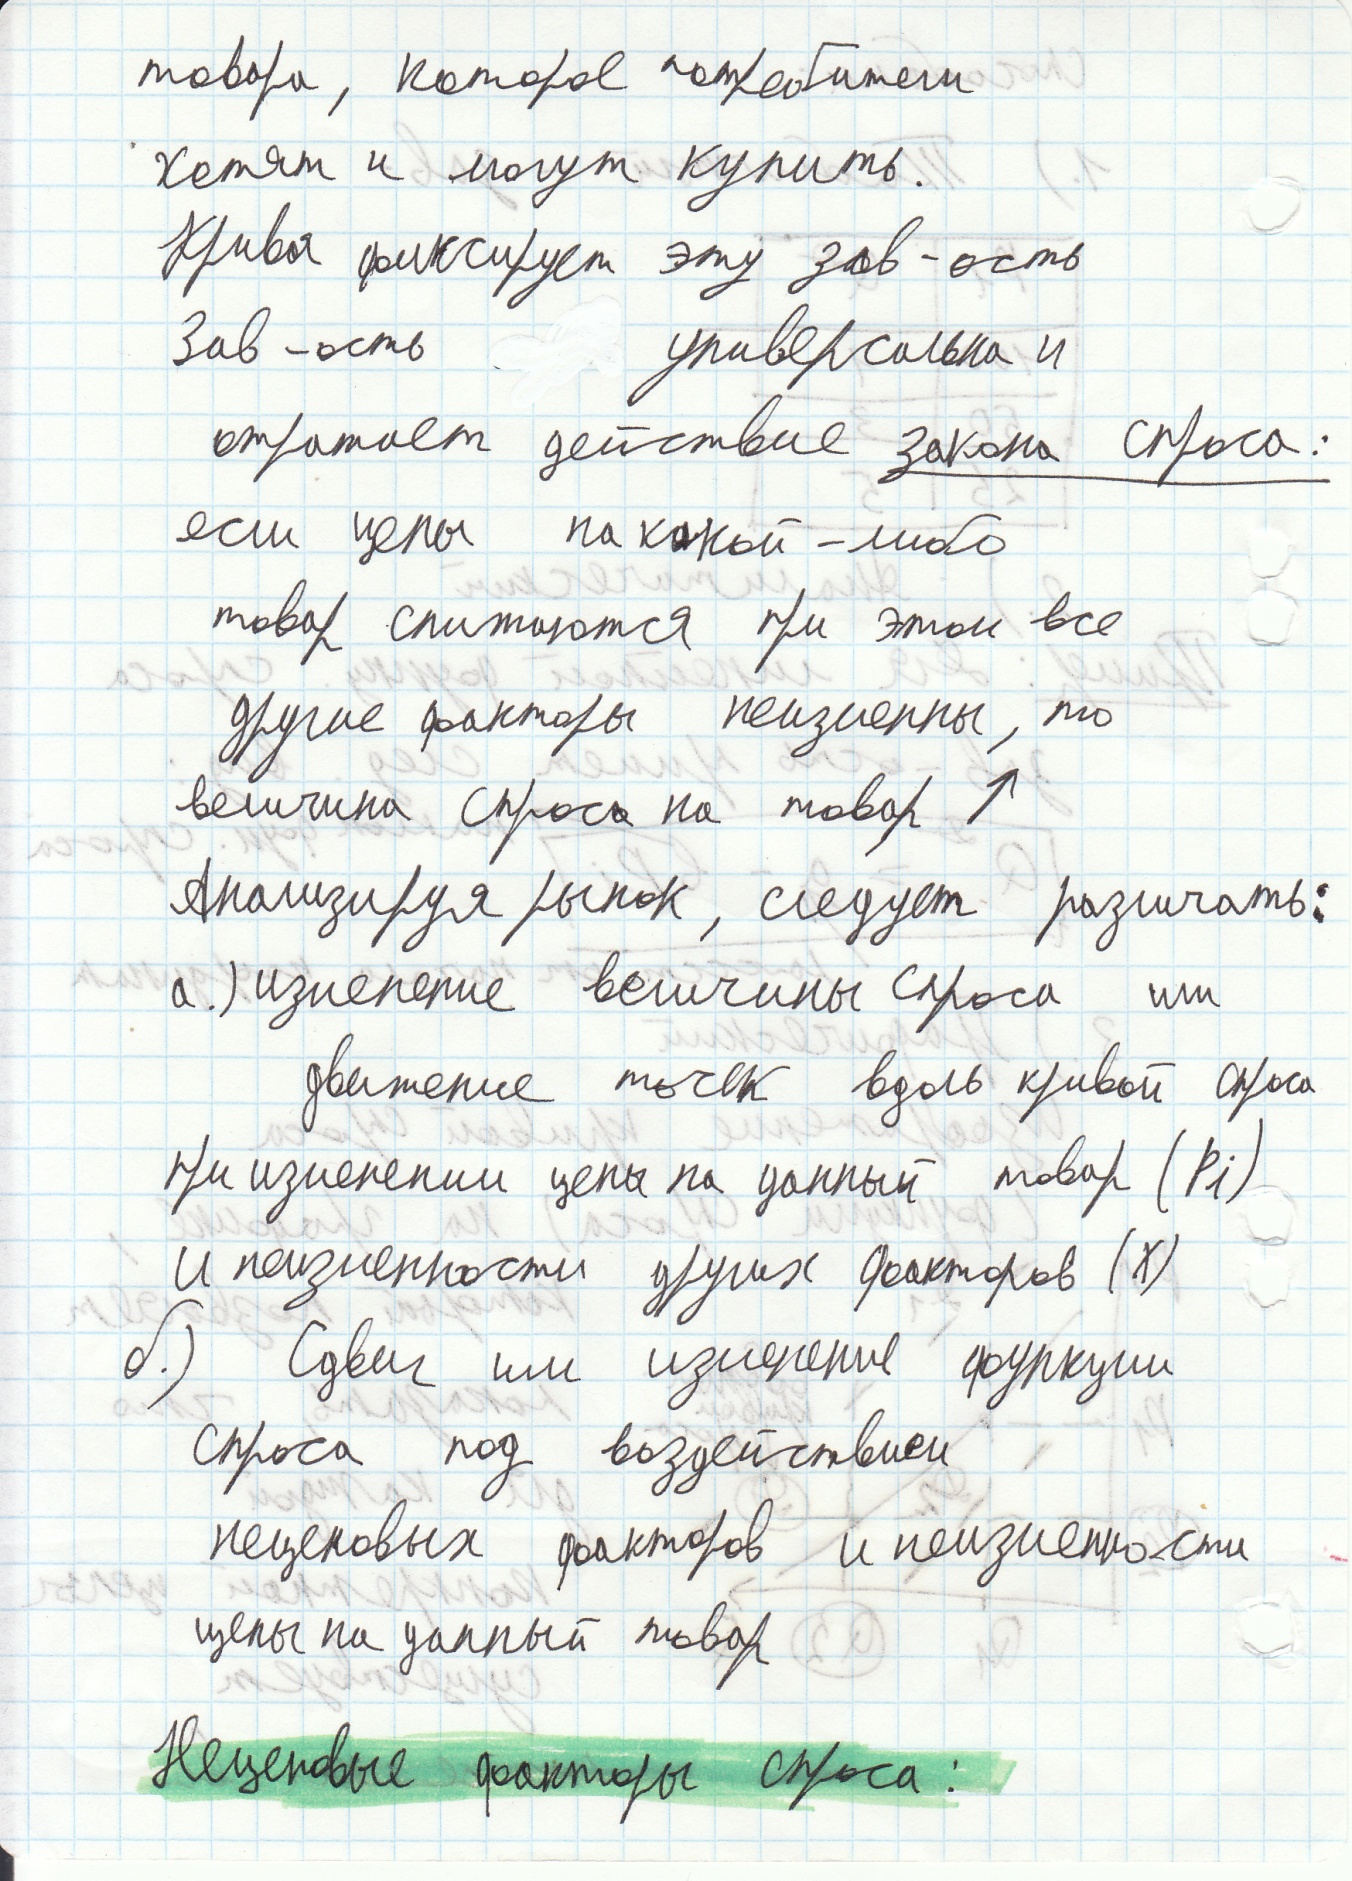 товара, которое потребители
хотят и могут купить.
Кривая фиксирует эту зав-ость
Зав-ость универсальна и
отражает действие закона спроса:
если цены на какой-либо
товар снижаются при этом все
другие факторы неизменны, то
величина спроса на товар ↑
Анализируя рынок, следует различать:
а.) изменение величины спроса или
движение точек вдоль кривой спроса
при изменении цены на данный товар (Pi)
и неизменности других факторов (X)
б.) Сдвиг или изменение функции
спроса под воздействием
неценовых факторов и неизменности
цены на данный товар
Неценовые факторы спроса: